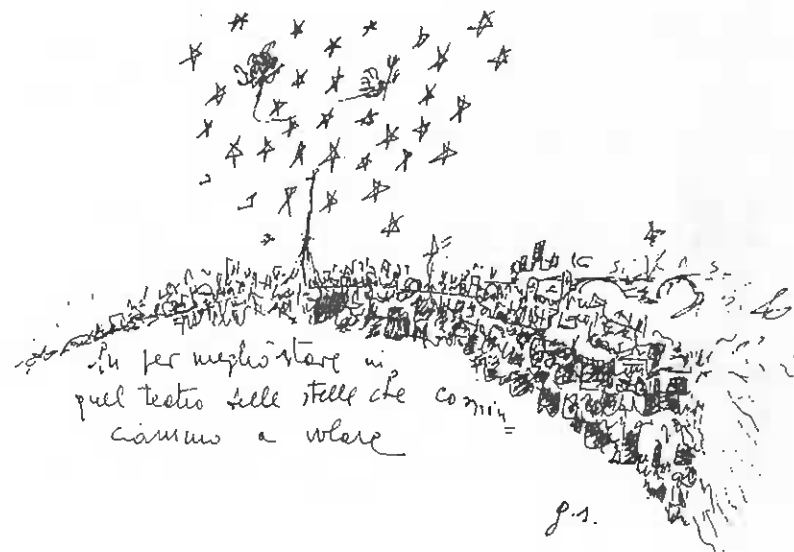 fu per meglio stare in
quel teatro delle stelle che comin=
ciammo a volare
g.s.